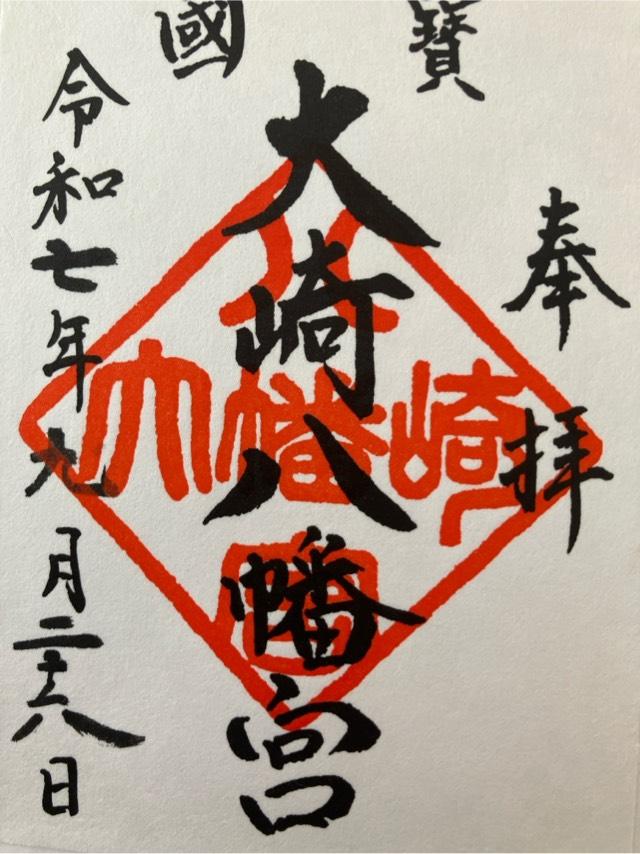 國寳
奉拝
大崎八幡宮
令和七年九月二十八日
大崎八幡宮